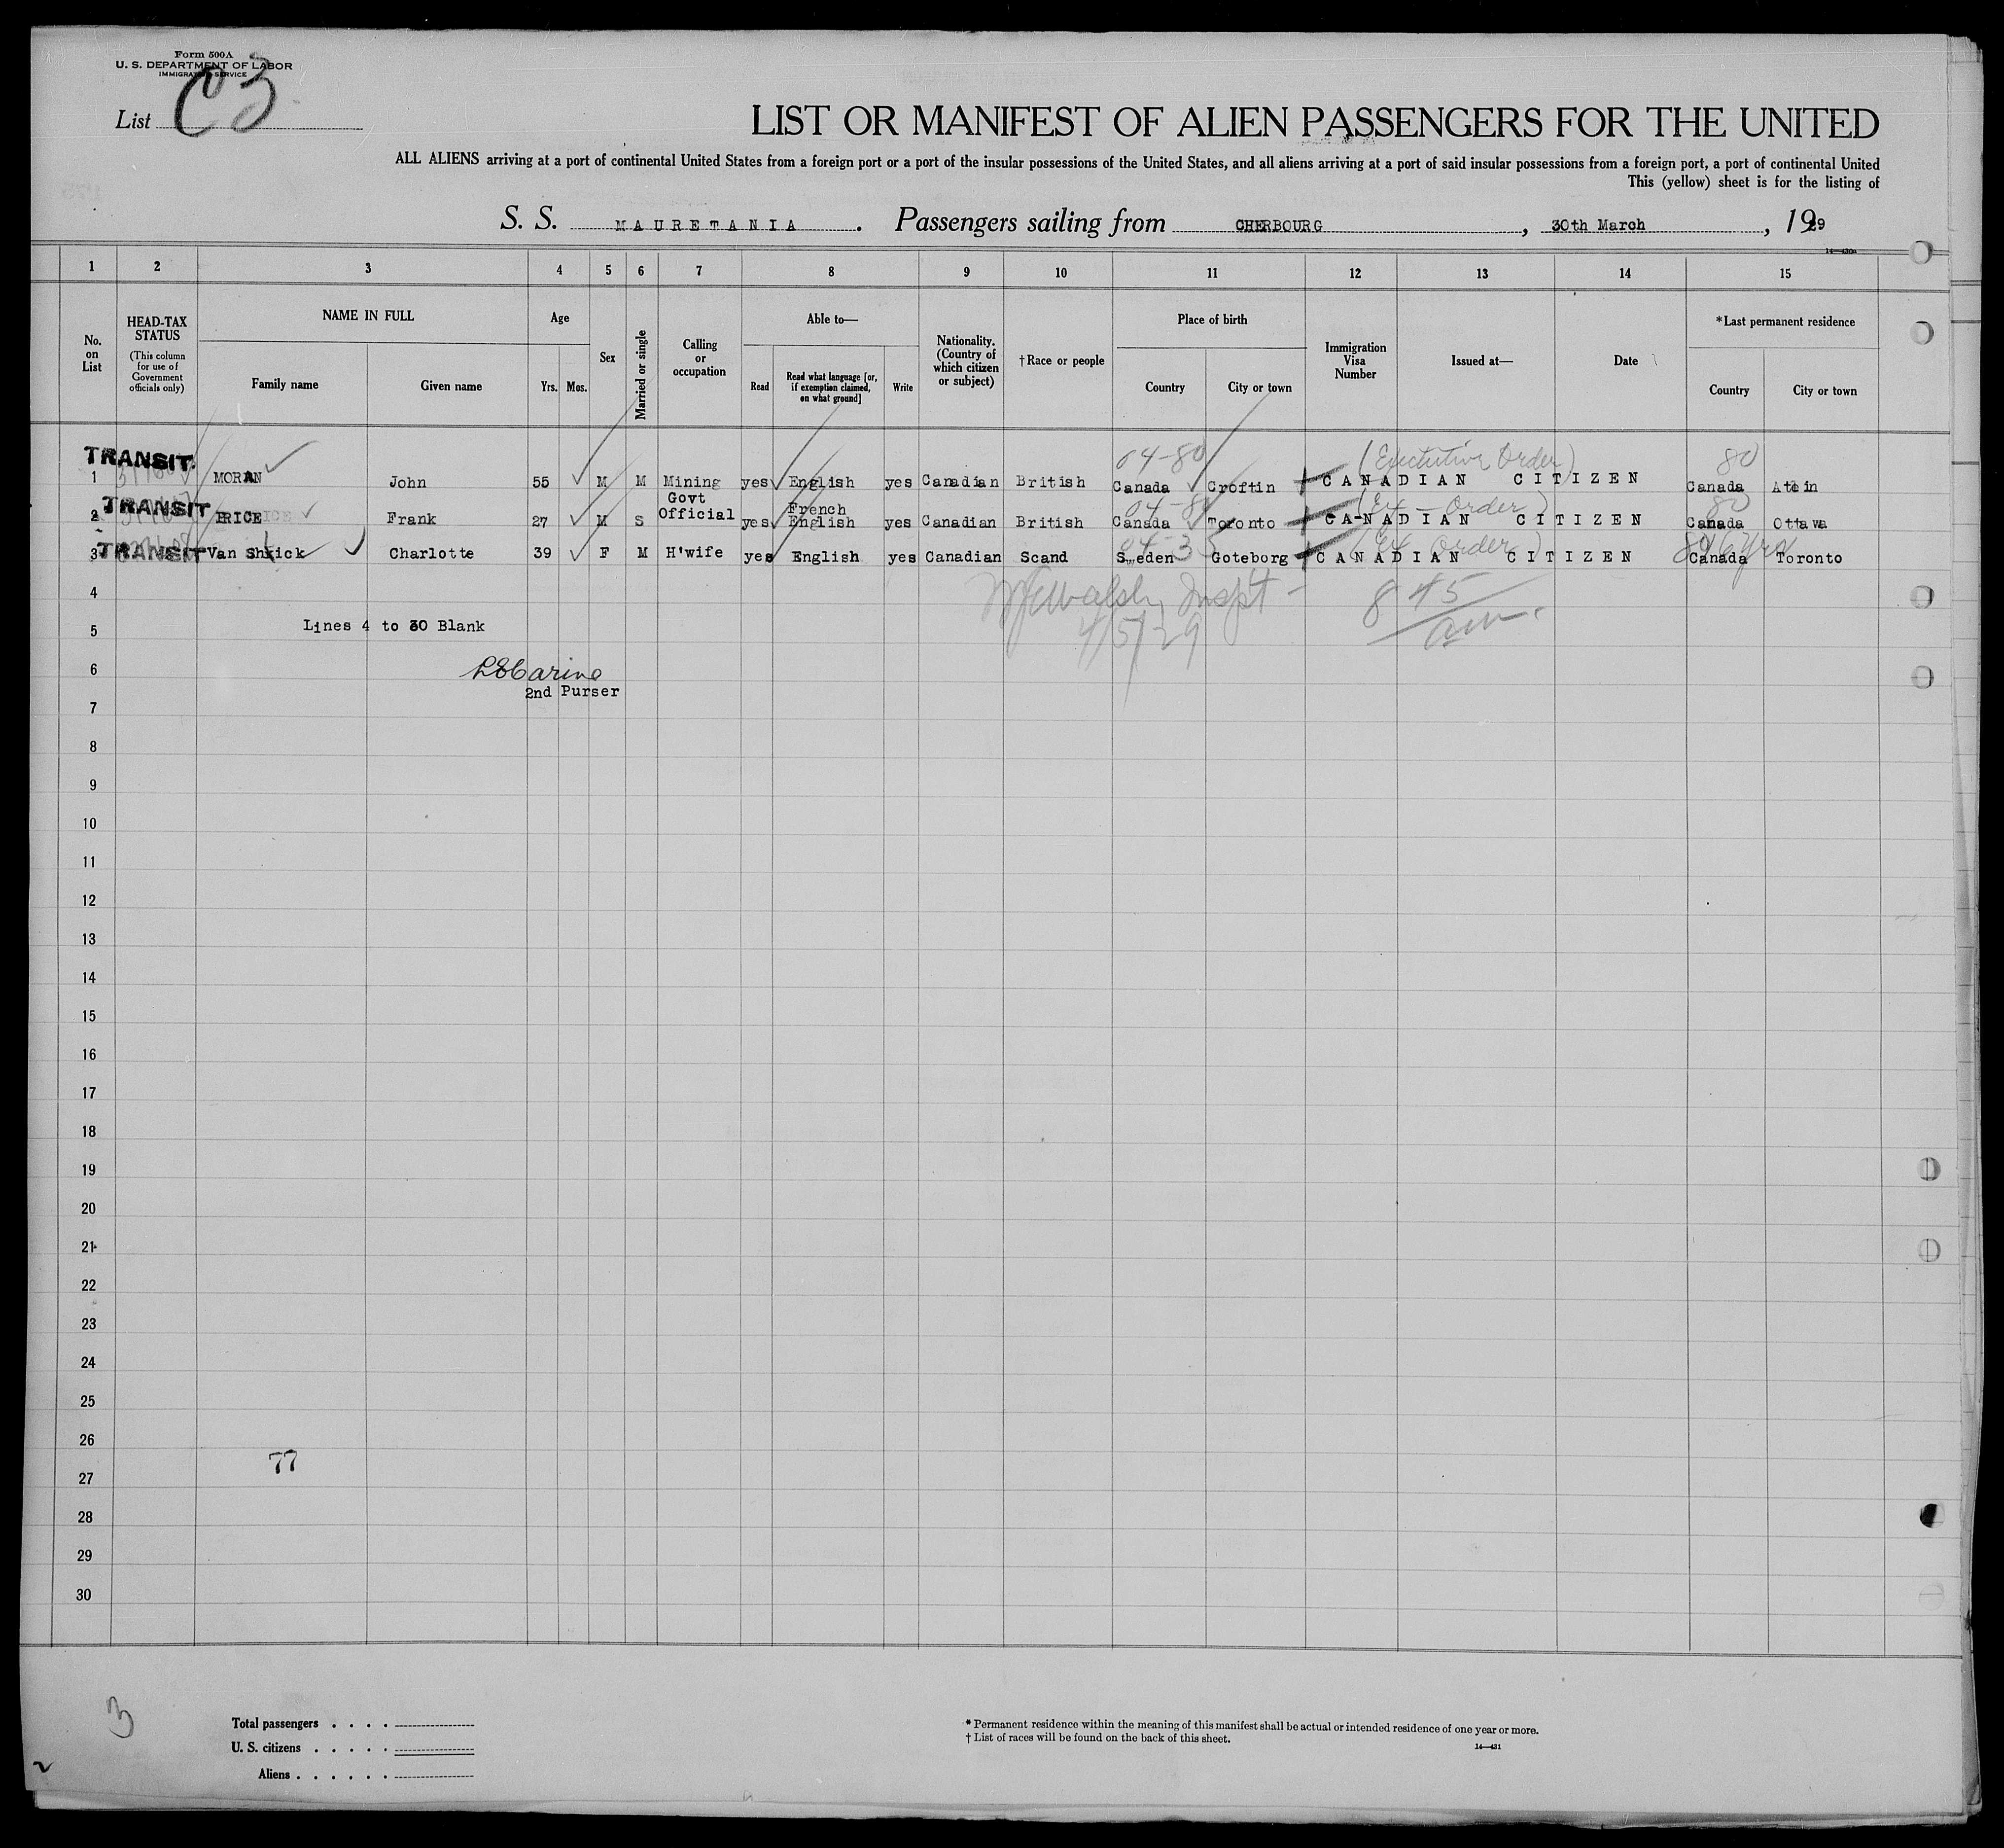 Form 500A
U. S. DEPARTMENT OF LABOR
IMMIGRATION SERVICE
List C3
LIST OR MANIFEST OF ALIEN PASSENGERS FOR THE UNITED
ALL ALIENS arriving at a port of continental United States from a foreign port or a port of the insular possessions of the United States, and all aliens arriving at a port of said insular possessions from a foreign port, a port of continental United
This (yellow) sheet is for the listing of
S. S. MAURETANIA. Passengers sailing from CHERBOURG, 30th March, 1929
14—430a
1 2 3 4 5 6 7 8 9 10 11 12 13 14 15
No. on List
HEAD-TAX STATUS
(This column for use of Government officials only)
NAME IN FULL
Family name Given name
Age
Yrs. Mos.
Sex
Married or single
Calling or occupation
Able to—
Read
Read what language [or, if exemption claimed, on what ground]
Write
Nationality. (Country of which citizen or subject)
†Race or people
Place of birth
Country City or town
Immigration Visa Number
Issued at—
Date
*Last permanent residence
Country City or town
04-80 (Executive Order) 80
TRANSIT.
1 MORAN John 55 M M Mining yes English yes Canadian British Canada Croftin CANADIAN CITIZEN Canada Atein
04-80 (Ex - Order) 80
TRANSIT
2 PRICE Frank 27 M S Govt Official yes French English yes Canadian British Canada Toronto CANADIAN CITIZEN Canada Ottawa
04-35 (Ex Order)
TRANSIT
3 Van Shkick Charlotte 39 F M H'wife yes English yes Canadian Scand Sweden Goteborg CANADIAN CITIZEN Canada Toronto
4
Walsh, Inspt - 8 45 am.
4/5/29
5 Lines 4 to 30 Blank
6
2nd Purser
7
8
9
10
11
12
13
14
15
16
17
18
19
20
21
22
23
24
25
26
77
27
28
29
30
3
Total passengers . . . .
U. S. citizens . . . . .
Aliens . . . . . .
* Permanent residence within the meaning of this manifest shall be actual or intended residence of one year or more.
† List of races will be found on the back of this sheet.
14—431